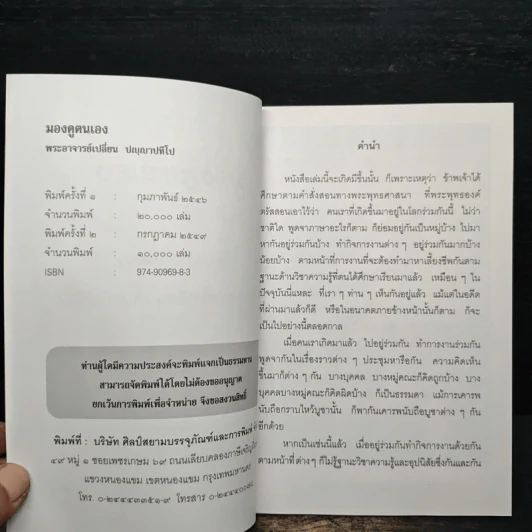 มองดูตนเอง
พระอาจารย์เปลี่ยน ปญฺญาปทีโป
พิมพ์ครั้งที่ ๑ : กุมภาพันธ์ ๒๕๔๖
จำนวนพิมพ์ : ๒๐,๐๐๐ เล่ม
พิมพ์ครั้งที่ ๒ : กรกฎาคม ๒๕๔๙
จำนวนพิมพ์ : ๑๐,๐๐๐ เล่ม
ISBN : 974-90969-8-3
ท่านผู้ใดมีความประสงค์จะพิมพ์แจกเป็นธรรมทาน
สามารถจัดพิมพ์ได้โดยไม่ต้องขออนุญาต
ยกเว้นการพิมพ์เพื่อจำหน่าย จึงขอสงวนสิทธิ์
พิมพ์ที่ : บริษัท ศิลป์สยามบรรจุภัณฑ์และการพิมพ์
๔๙ หมู่ ๑ ซอยเพชรเกษม ๖๙ ถนนเลียบคลองภาษีเจริญ
แขวงหนองแขม เขตหนองแขม กรุงเทพมหานคร
โทร. ๐-๒๔๔๔๓๓๕๑-๙ โทรสาร
คำนำ
หนังสือเล่มนี้จะเกิดมีขึ้นนั้น ก็เพราะเหตุว่า ข้าพเจ้าได้
ศึกษาตามคำสั่งสอนทางพระพุทธศาสนา ที่พระพุทธองค์
ตรัสสอนเอาไว้ว่า คนเราที่เกิดขึ้นมาอยู่ในโลกร่วมกันนี้ ไม่ว่า
ชาติใด พูดจาภาษาอะไรก็ตาม ก็ย่อมอยู่กันเป็นหมู่บ้าง ไปมา
หากันอยู่ร่วมกันบ้าง ทำกิจการงานต่าง ๆ อยู่ร่วมกันมากบ้าง
น้อยบ้าง ตามหน้าที่การงานที่จะต้องทำมาหาเลี้ยงชีพกันตาม
ฐานะด้านวิชาความรู้ที่ตนได้ศึกษาเรียนมาแล้ว เหมือน ๆ ใน
ปัจจุบันนี้แหละ ที่เรา ๆ ท่าน ๆ เห็นกันอยู่แล้ว แม้แต่ในอดีต
ที่ผ่านมาแล้วก็ดี หรือในอนาคตภายข้างหน้านั้นก็ตาม ก็จะ
เป็นไปอย่างนี้ตลอดกาล
เมื่อคนเราเกิดมาแล้ว ไปอยู่ร่วมกัน ทำการงานร่วมกัน
พูดจากันในเรื่องราวต่าง ๆ ประชุมหารือกัน ความคิดเห็น
ขึ้นมาก็ต่าง ๆ กัน บางบุคคล บางหมู่คณะก็คิดถูกบ้าง บาง
บุคคลบางหมู่คณะก็คิดผิดบ้าง ก็เป็นธรรมดา แม้การเคารพ
นับถือกราบไหว้บูชานั้น ก็พากันเคารพนับถือบูชาต่าง ๆ กัน
อีกด้วย
หากเป็นเช่นนี้แล้ว เมื่ออยู่ร่วมกันทำกิจการงานด้วยกัน
ตามหน้าที่ต่างๆ ก็ไม่รู้ฐานะวิชาความรู้และอุปนิสัยซึ่งกันและกัน